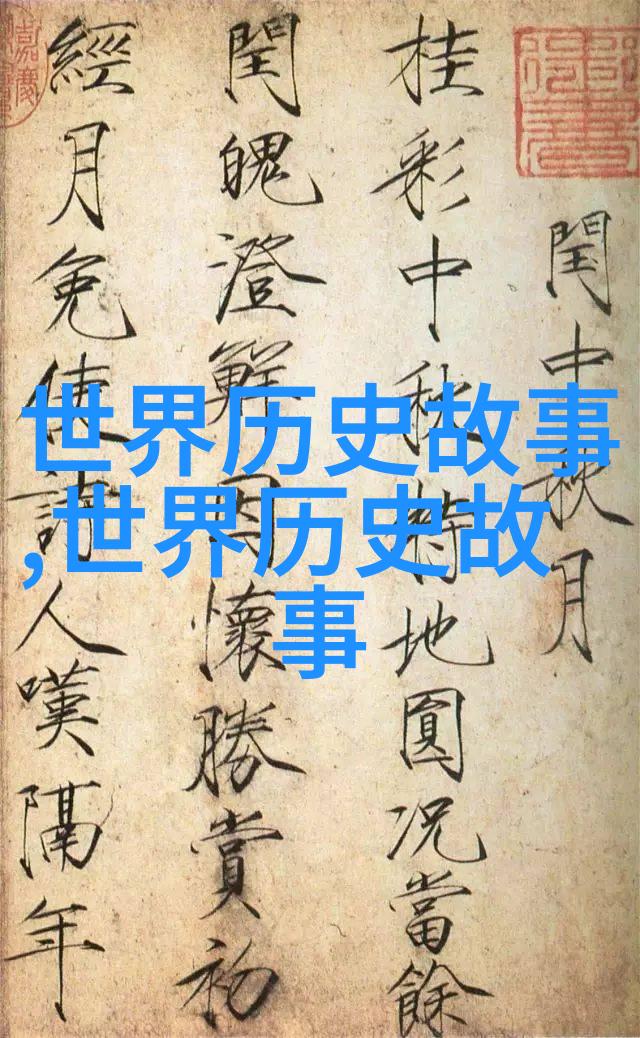 閏中秋月
桂彩中秋特地圓况當餘
閏魄澄鮮因懷勝賞初
經月免使詩人嘆隔年
世界历史故事
,世界历史故
事